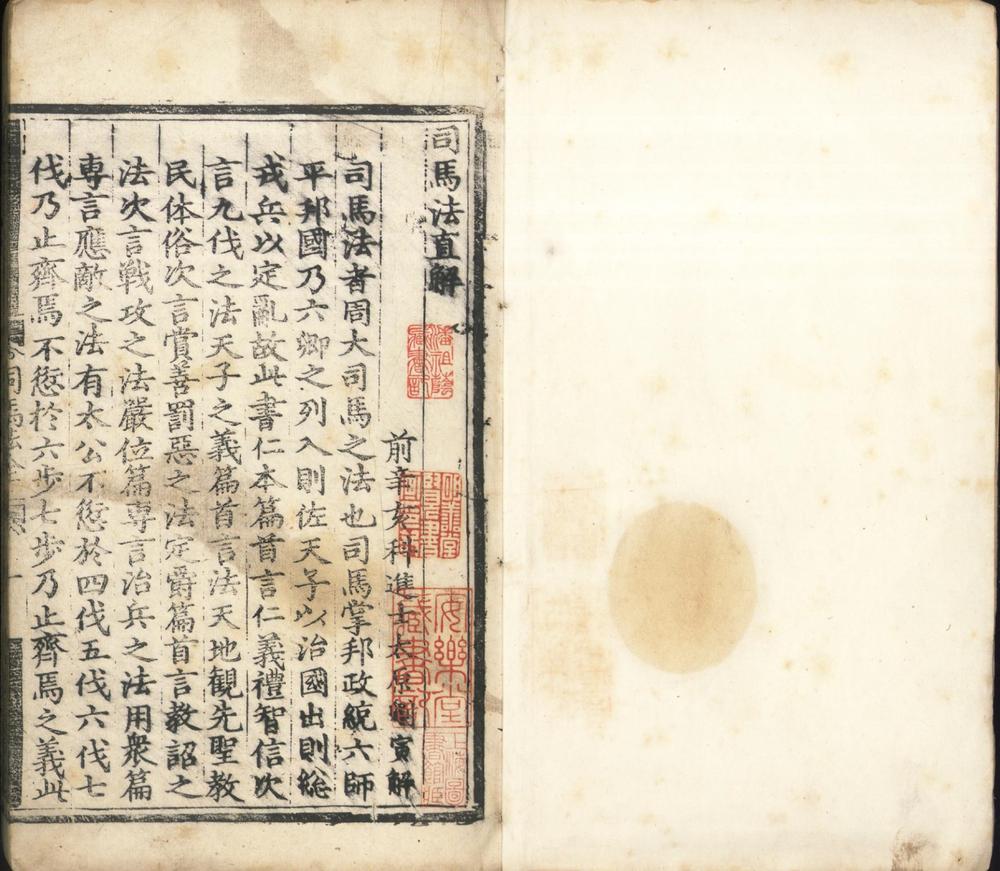 司馬法直解
前辛亥科進士太原劉寅解
司馬法者周大司馬之法也司馬掌邦政統六師
平邦國乃六卿之列入則佐天子以治國出則總
戎兵以定亂故此書仁本篇首言仁義禮智信次
言九伐之法天子之義篇首言法天地觀先聖教
民体俗次言賞善罰惡之法定爵篇首言教詔之
法次言戰攻之法嚴位篇専言治兵之法用衆篇
専言應敵之法有太公不愆於四伐五伐六伐七
伐乃止齊焉不愆於六步七步乃止齊焉之義此
潘祖蔭
藏書記
安樂堂
藏書記